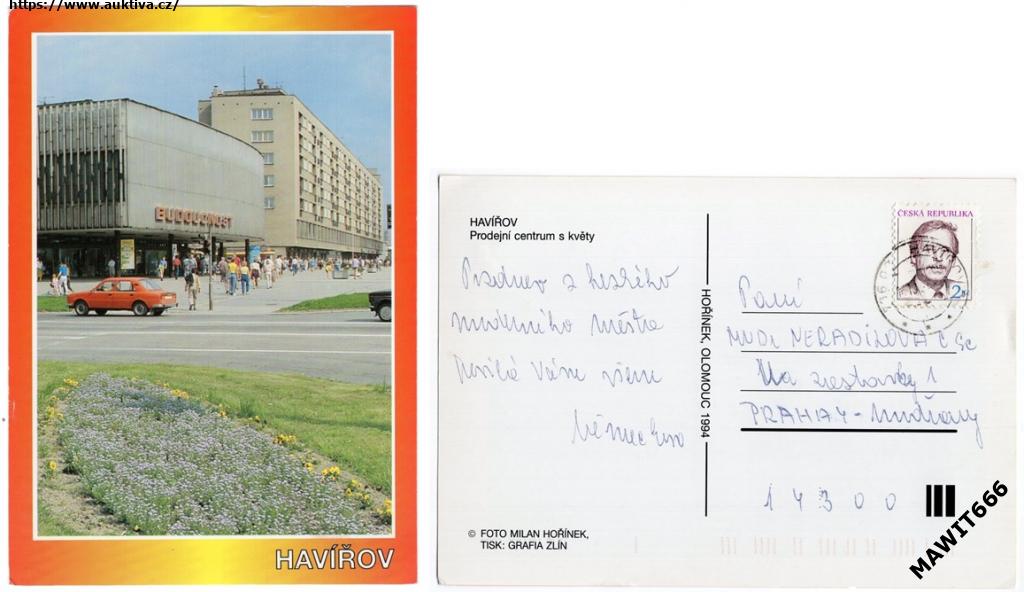 https://www.auktiva.cz/
BUDOUCNOST
HAVÍŘOV
HAVÍŘOV
Prodejní centrum s květy
Pozdrav z hezkého
moderního města
Posílá Vám všem
Němečkova
© FOTO MILAN HOŘÍNEK,
TISK: GRAFIA ZLÍN
HOŘÍNEK, OLOMOUC 1994
ČESKÁ REPUBLIKA
2
Paní
MUDr NERADÍLOVÁ CSc
Na 1
PRAHA 4 -
14300
MAWIT666